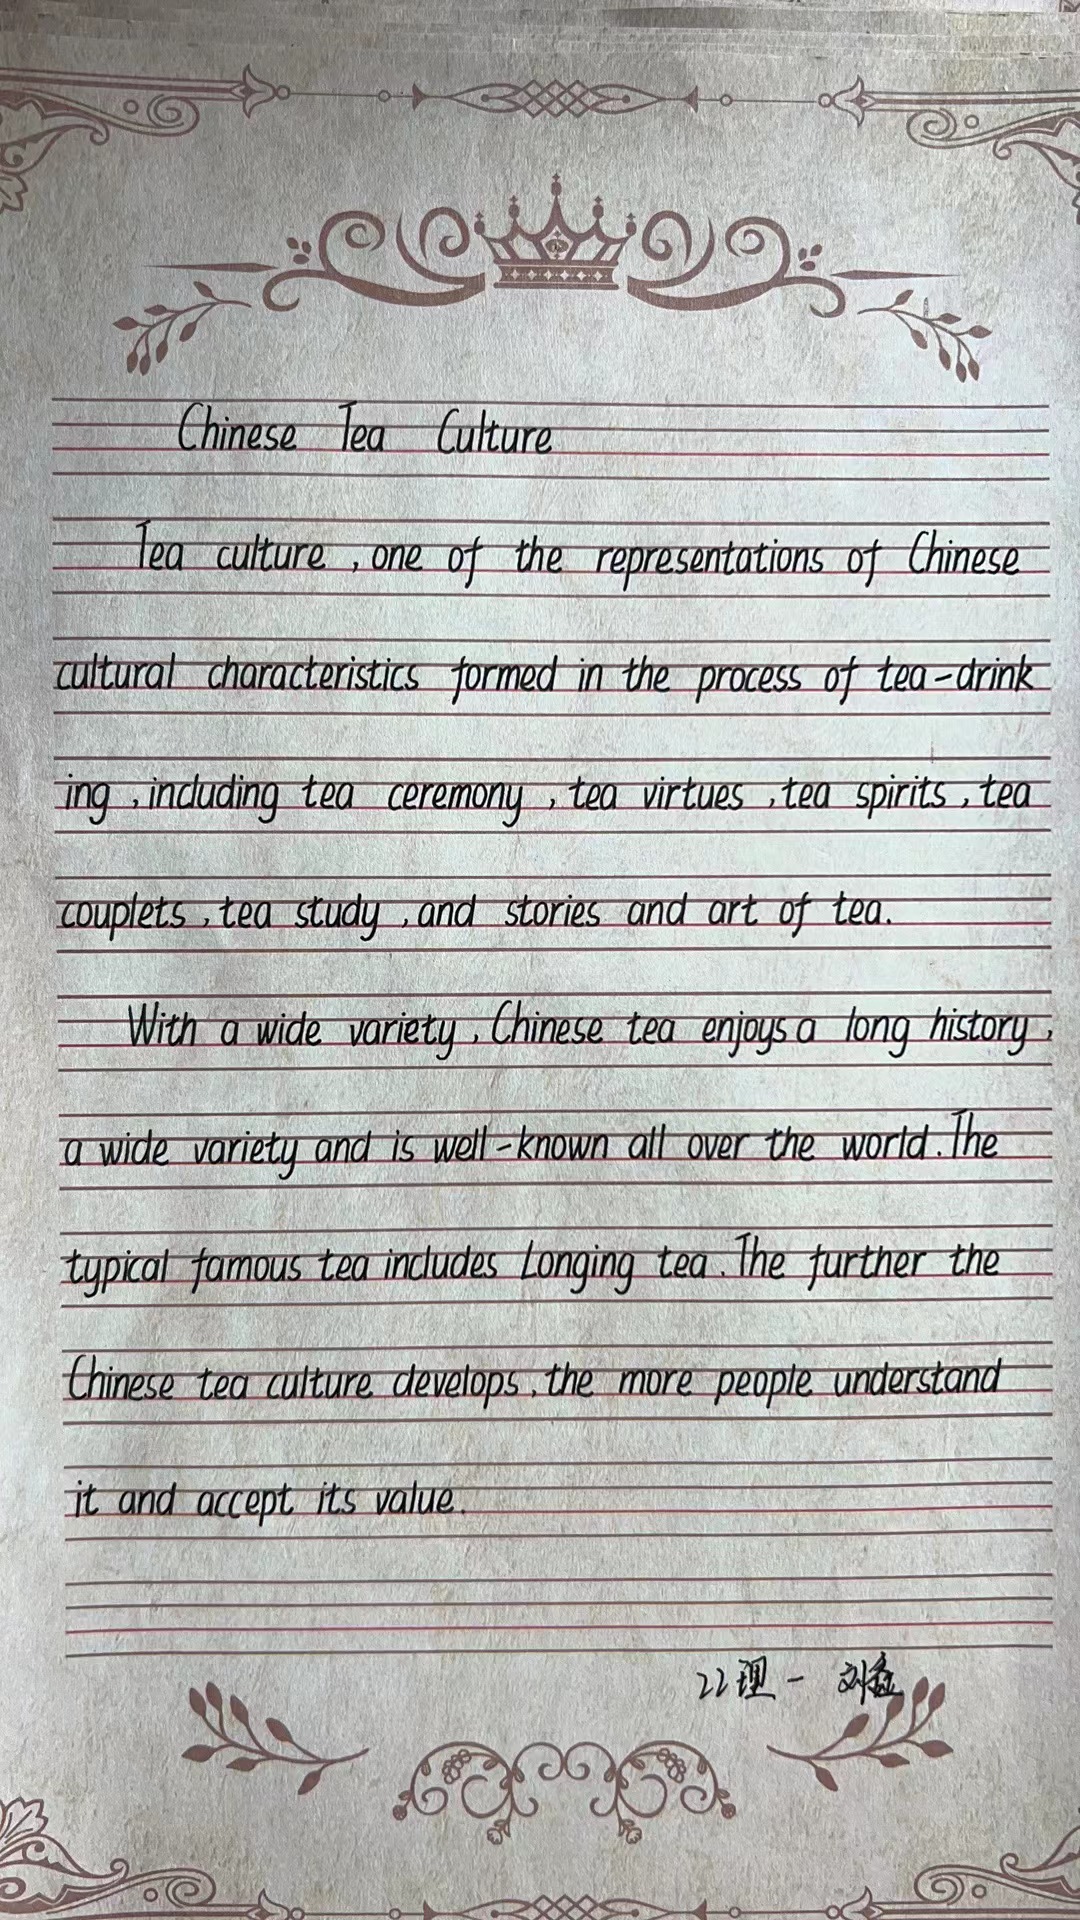 Chinese Tea Culture
Tea culture, one of the representations of Chinese
cultural characteristics formed in the process of tea-drink
ing, including tea ceremony, tea virtues, tea spirits, tea
couplets, tea study, and stories and art of tea.
With a wide variety, Chinese tea enjoys a long history,
a wide variety and is well-known all over the world. The
typical famous tea includes Longing tea. The further the
Chinese tea culture develops, the more people understand
it and accept its value.
22理一 刘